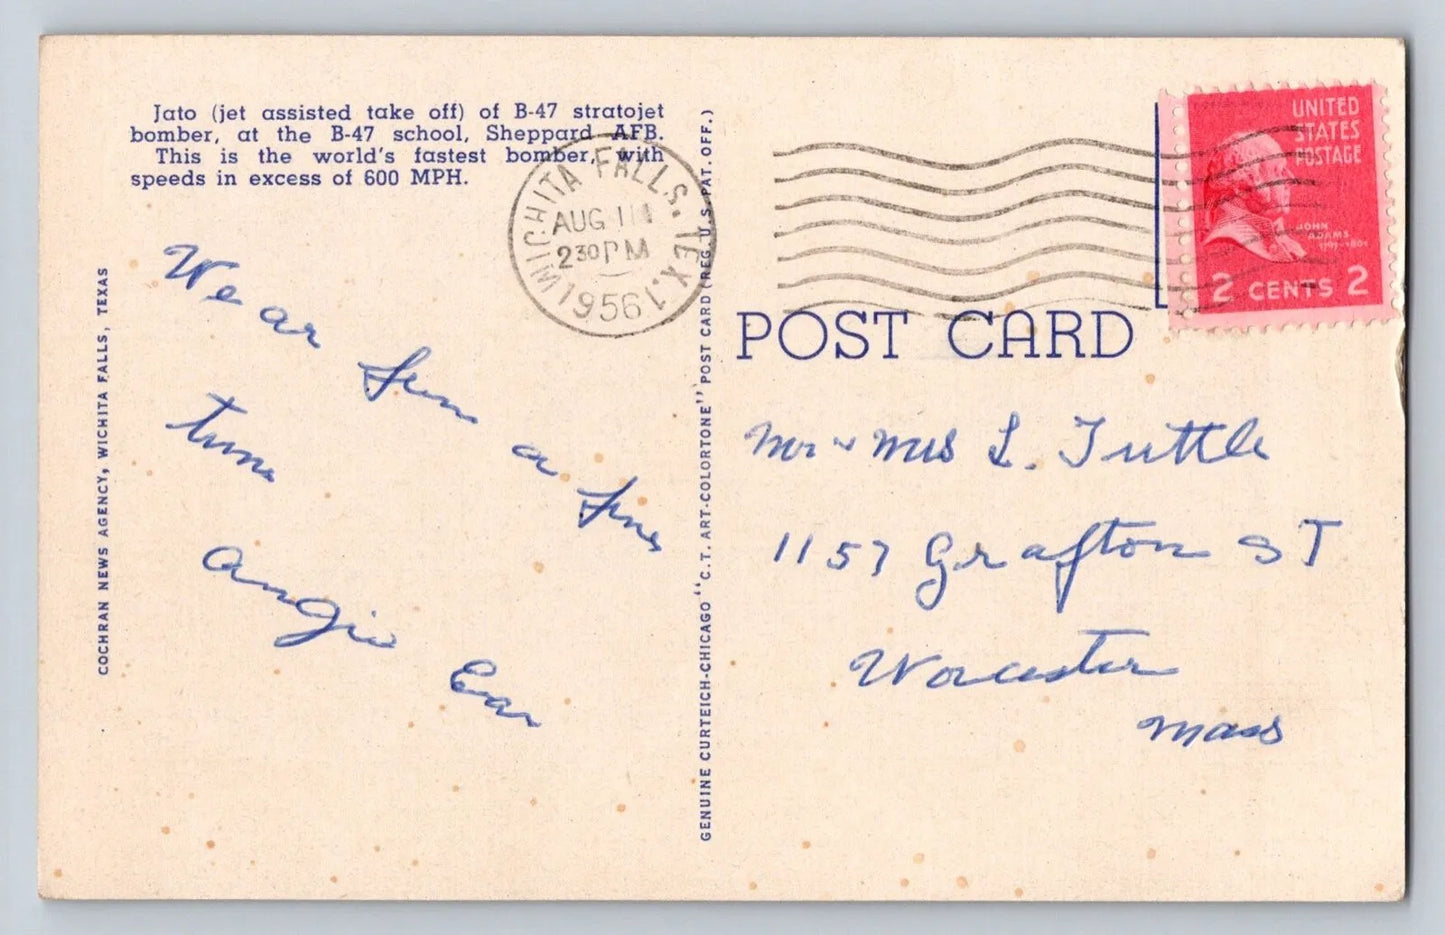 Jato (jet assisted take off) of B-47 stratojet
bomber, at the B-47 school, Sheppard AFB.
This is the world's fastest bomber, with
speeds in excess of 600 MPH.
COCHRAN NEWS AGENCY, WICHITA FALLS, TEXAS
We ar
a
time
Angie
GENUINE CURTEICH-CHICAGO "C.T. ART-COLORTONE" POST CARD (REG. U.S. PAT. OFF.)
WICHITA FALLS, TEX. 1
AUG 11
230 PM
1956
UNITED
STATES
POSTAGE
JOHN
ADAMS
2 CENTS 2
POST CARD
Mr & Mrs L. Tuttle
1157 Grafton ST
Worcester
Mass